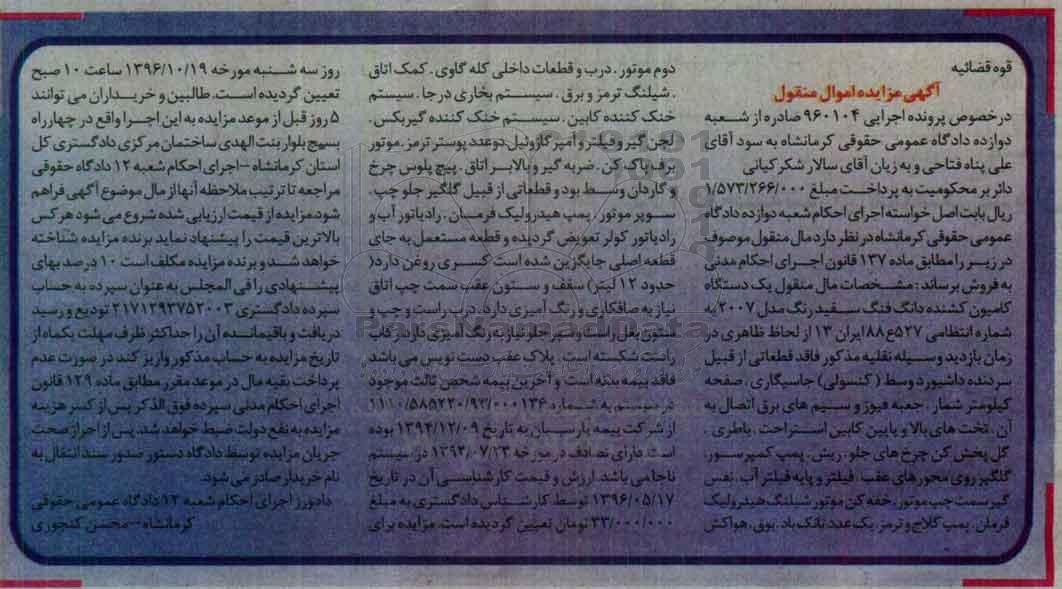 قوه قضائیه
آگهی مزایده اموال منقول
درخصوص پرونده اجرایی ۹۶۰۱۰۴ صادره از شعبه
دوازده دادگاه عمومی حقوقی کرمانشاه به سود آقای
علی پناه فتاحی و به زیان آقای سالار شکر کیانی
دائر بر محکومیت به پرداخت مبلغ ۱/۵۷۳/۲۶۶/۰۰۰
ریال بابت اصل خواسته اجرای احکام شعبه دوازده دادگاه
عمومی حقوقی کرمانشاه در نظر دارد مال منقول موصوف
در زیر را مطابق ماده ۱۳۷ قانون اجرای احکام مدنی
به فروش برساند : مشخصات مال منقول یک دستگاه
کامیون کشنده دانگ فنگ سفید رنگ مدل ۲۰۰۷ به
شماره انتظامی ۵۲۷ع۸۸ ایران ۱۳ از لحاظ ظاهری در
زمان بازدید وسیله نقلیه مذکور فاقد قطعاتی از قبیل
سردنده داشبورد وسط ( کنسولی) جاسیگاری . صفحه
کیلومتر شمار . جعبه فیوز و سیم های برق اتصال به
آن . تخت های بالا و پایین کابین استراحت . باطری .
گل پخش کن چرخ های جلو . ریش . پمپ کمپرسور .
گلگیر روی محورهای عقب . فیلتر و پایه فیلتر آب . نفس
گیر سمت چپ موتور . خفه کن موتور شیلنگ هیدرولیک
فرمان . پمپ کلاچ و ترمز . یک عدد تانک باد . بوق . هواکش
دوم موتور . درب و قطعات داخلی کله گاوی . کمک اتاق
. شیلنگ ترمز و برق . سیستم بخاری درجا . سیستم
خنک کننده کابین . سیستم خنک کننده گیربکس .
لجن گیر و فیلتر و آمپر گازوئیل دو عدد بوستر ترمز . موتور
برف پاک کن . ضربه گیر و بالابر اتاق . پیچ پلوس چرخ
و گاردان وسط بود و قطعاتی از قبیل گلگیر جلو چپ .
سوپر موتور . پمپ هیدرولیک فرمان . رادیاتور آب و
رادیاتور کولر تعویض گردیده و قطعه مستعمل به جای
قطعه اصلی جایگزین شده است کسری روغن دارد(
حدود ۱۲ لیتر) سقف و ستون عقب سمت چپ اتاق
نیاز به صافکاری و رنگ آمیزی دارد . درب راست و چپ و
ستون بغل راست و سپر جلو نیاز به رنگ آمیزی دارد قاب
راست شکسته است . پلاک عقب دست نویس می باشد
فاقد بیمه بدنه است و آخرین بیمه شخص ثالث موجود
در سیستم به شماره ۱۱۱۰/۵۸۵۲۲۰/۹۲/۰۰۰۱۳۶
از شرکت بیمه پارسیان به تاریخ ۱۳۹۴/۱۲/۰۹ بوده
است دارای تصادف در مورخه ۱۳۹۲/۰۷/۲۳ در سیستم
ناجا می باشد . ارزش و قیمت کارشناسی آن در تاریخ
۱۳۹۶/۰۵/۱۷ توسط کارشناس دادگستری به مبلغ
۳۳/۰۰۰/۰۰۰ تومان تعیین گردیده است . مزایده برای
روز سه شنبه مورخه ۱۳۹۶/۱۰/۱۹ ساعت ۱۰ صبح
تعیین گردیده است. طالبین و خریداران می توانند
۵ روز قبل از موعد مزایده به این اجرا واقع در چهارراه
بسیج بلوار بنت الهدی ساختمان مرکزی دادگستری کل
استان کرمانشاه – اجرای احکام شعبه ۱۲ دادگاه حقوقی
مراجعه تا ترتیب ملاحظه آنها از مال موضوع آگهی فراهم
شود.مزایده از قیمت ارزیابی شده شروع می شود هر کس
بالاترین قیمت را پیشنهاد نماید برنده مزایده شناخته
خواهد شد و برنده مزایده مکلف است ۱۰ درصد بهای
پیشنهادی را فی المجلس به عنوان سپرده به حساب
سپرده دادگستری ۲۱۷۱۲۹۳۷۵۲۰۰۳ تودیع و رسید
دریافت و باقیمانده آن را حداکثر ظرف مهلت یکماه از
تاریخ مزایده به حساب مذکور واریز کند در صورت عدم
پرداخت بقیه مال در موعد مقرر مطابق ماده ۱۲۹ قانون
اجرای احکام مدنی سپرده فوق الذکر پس از کسر هزینه
مزایده به نفع دولت ضبط خواهد شد. پس از احراز صحت
جریان مزایده توسط دادگاه دستور صدور سند انتقال به
نام خریدار صادر می شود.
دادورز اجرای احکام شعبه ۱۲ دادگاه عمومی حقوقی
کرمانشاه – محسن کنجوری
ParsNamadData